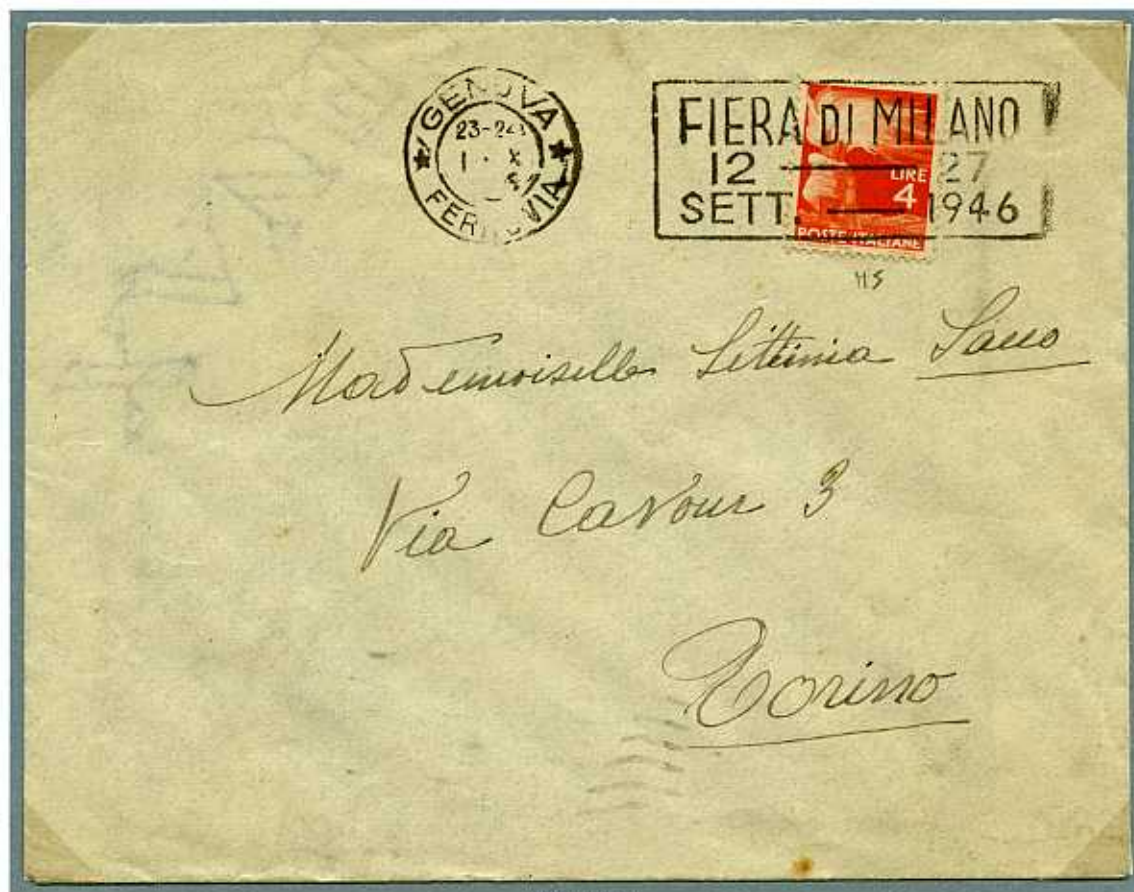 GENOVA
23-24
FERROVIA
FIERA DI MILANO
12 27
SETT. 1946
LIRE
4
POSTE ITALIANE
Mademoiselle Settimia
Via Cavour 3
Torino